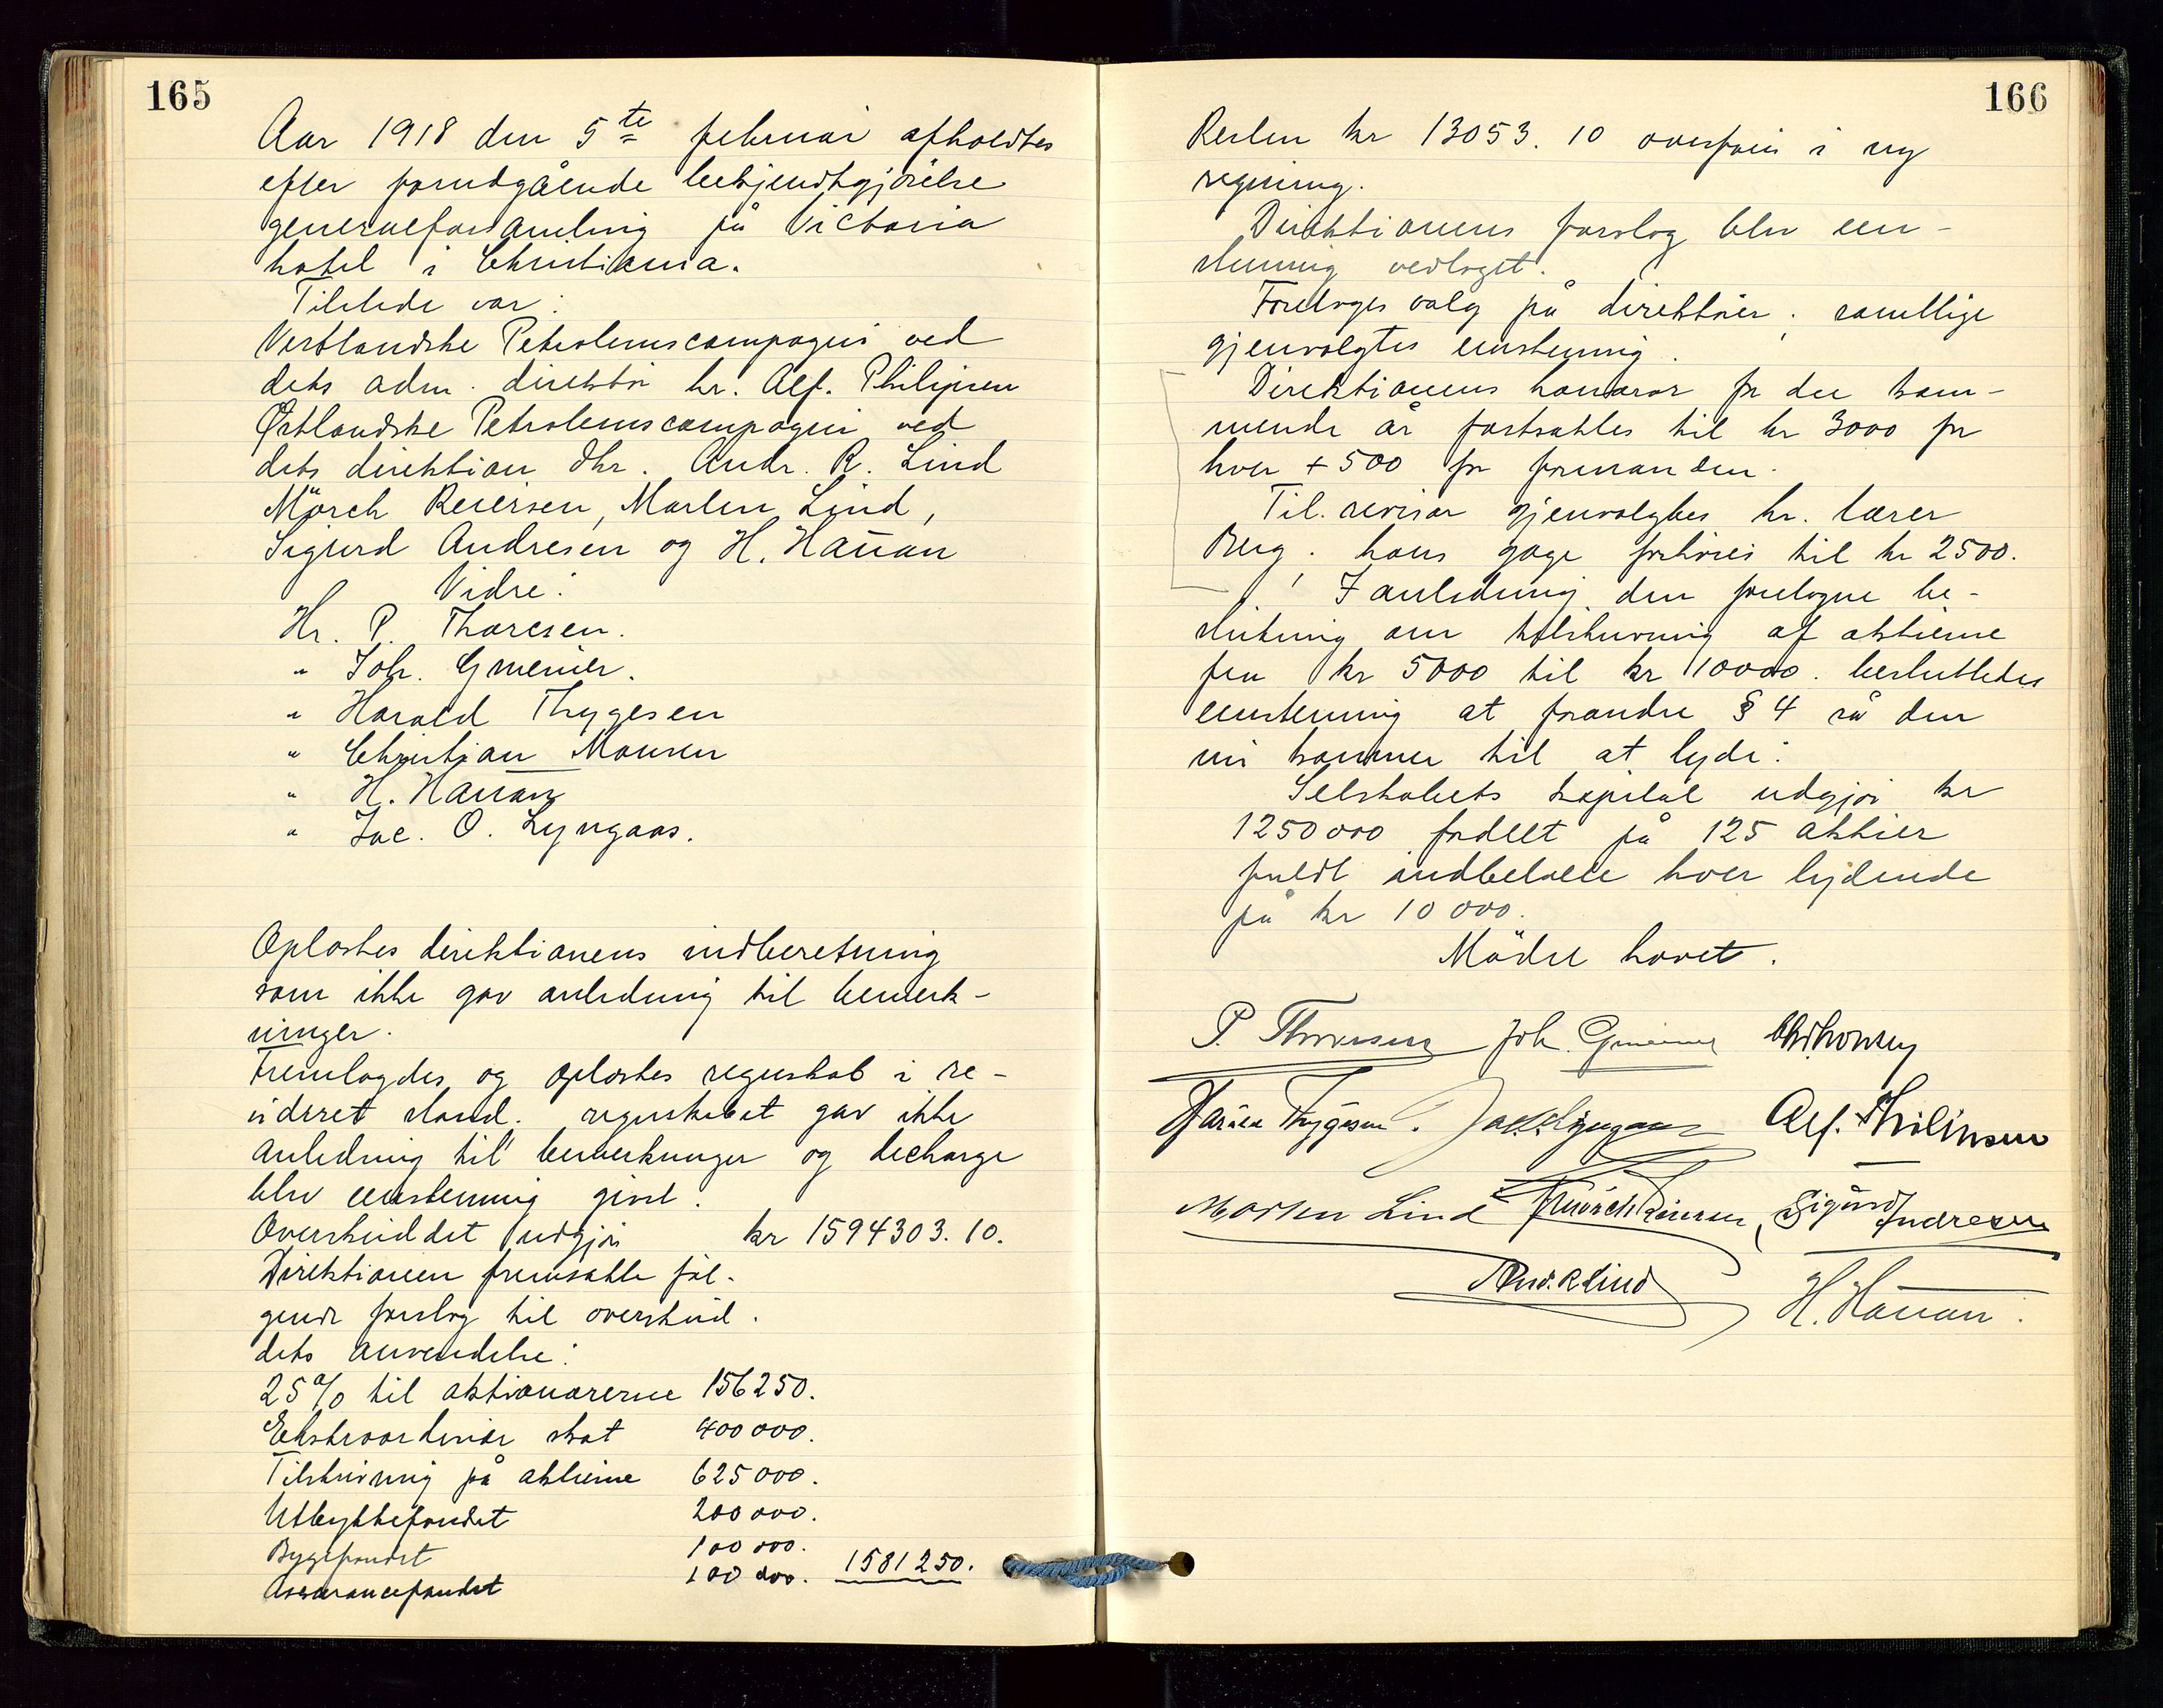 165
Aar 1918 den 5te februar afholdtes
efter forudgående bekjendtgjörelse
generalforsamling på Victoria
hotel i Christiania.
Tilstede var:
Vestlandske Petroleumscompagni ved
dets adm. direktör hr. Alf. Philipsen
Østlandske Petroleumscompagni ved
dets direktion dhr. Andr. R. Lind
Mörch Reiersen, Morten Lind,
Sigurd Andresen og H. Hauan
Vidre:
Hr. P. Thoresen.
" Joh. Gmeiner.
" Harald Thygesen
" Christian Monsen
" H. Hauan
" Jac. O. Lyngaas.
Oplæstes direktionens indberetning
som ikke gav anledning til bemerk-
ninger.
Fremlagdes og oplæstes regnskab i re-
videret stand. regnskabet gav ikke
anledning til bemerkninger og decharge
blev eenstemmig givet.
Overskuddet udgjör kr 1594303.10.
Direktionen fremsatte föl-
gende forslag til overskud.
dets anvendelse:
25% til aktionærerne 156250.
Ekstraordinær skat 400000.
Tilskrivning på aktierne 625000.
Utbyttefondet 200000.
Byggefondet 100000.
Assurancefondet 100000. 1581250.
166
Resten kr 13053.10 overföres i ny
regning.
Direktionens forslag blev een-
stemmig vedtaget.
Foretoges valg på direktör; samtlige
gjenvalgtes eenstemmig.
Direktionens honorar for det kom-
mende år fastsattes til kr 3000 for
hver + 500 for formanden.
Til revisor gjenvalgtes hr. lærer
Berg; hans gage forhöies til kr 2500.
I anledning den foretagne be-
slutning om tilskrivning af aktierne
fra kr 5000 til kr 10000. besluttedes
eenstemmig at forandre § 4 så den
nu kommer til at lyde:
Selskabets kapital udgjör kr
1250000 fordelt på 125 aktier
fuldt indbetalte hver lydende
på kr 10000.
Mödet hævet.
P. Thoresen Joh. Gmeiner Chr. Monsen
Harald Thygesen. Jac. O. Lyngaas Alf. Philipsen
Morten Lind Mörch Reiersen, Sigurd Andresen
Andr. R. Lind H. Hauan.